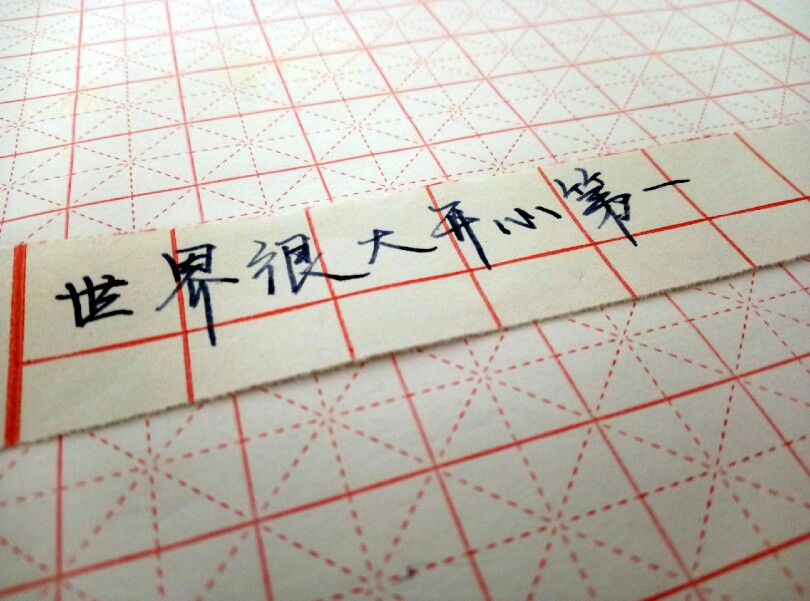 世界很大开心第一